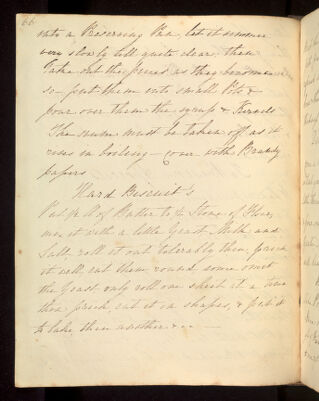 66
into a Preserving Pan, let it simmer
very slowly till quite clear, then
take out the pieces as they become
so - put them into small Pots &
pour over them the syrup & Kernels
The scum must be taken off as it
rises in boiling - cover with Brandy
papers
Hard Biscuits
Put ¼ of Butter to ½ Stone of Flour,
mix it with a little Yeast, Milk and
Salt, roll it out tolerably thin, prick
it well cut them round some omit
the Yeast only roll one sheet at a time
then prick, cut it in shapes, & put it
to bake then another &c